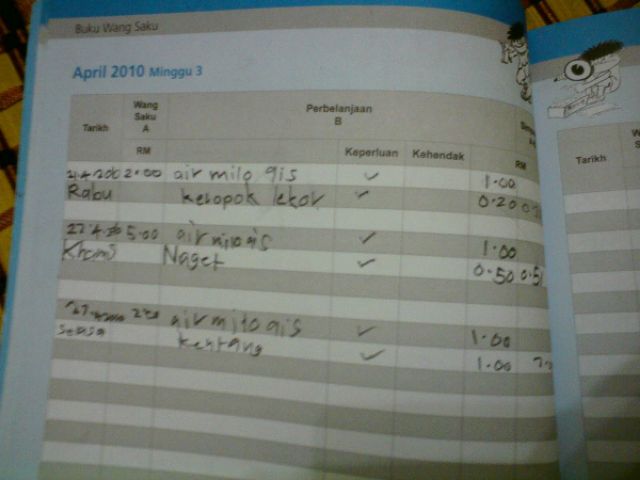 Buku Wang Saku
April 2010 Minggu 3
Tarikh Wang Saku A Perbelanjaan B
RM Keperluan Kehendak RM
Tarikh
2.00 air milo ais ✓ 1.00
Rabu keropok lekor ✓ 0.20
5.00 air milo ais ✓ 1.00
Khamis Naget ✓ 0.50
air milo ais ✓ 1.00
kentang ✓ 1.00